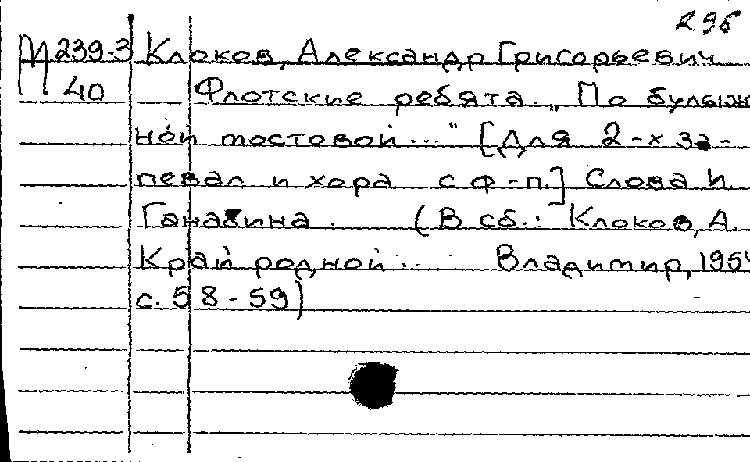 296
М 239-3 Клоков, Александр Григорьевич
40 Флотские ребята. „По булыж
ной мостовой..." [Для 2-х за-
певал и хора с ф-п.] Слова И.
Ганабина. (В сб.: Клоков, А.
Край родной... Владимир, 1954
с. 58-59)